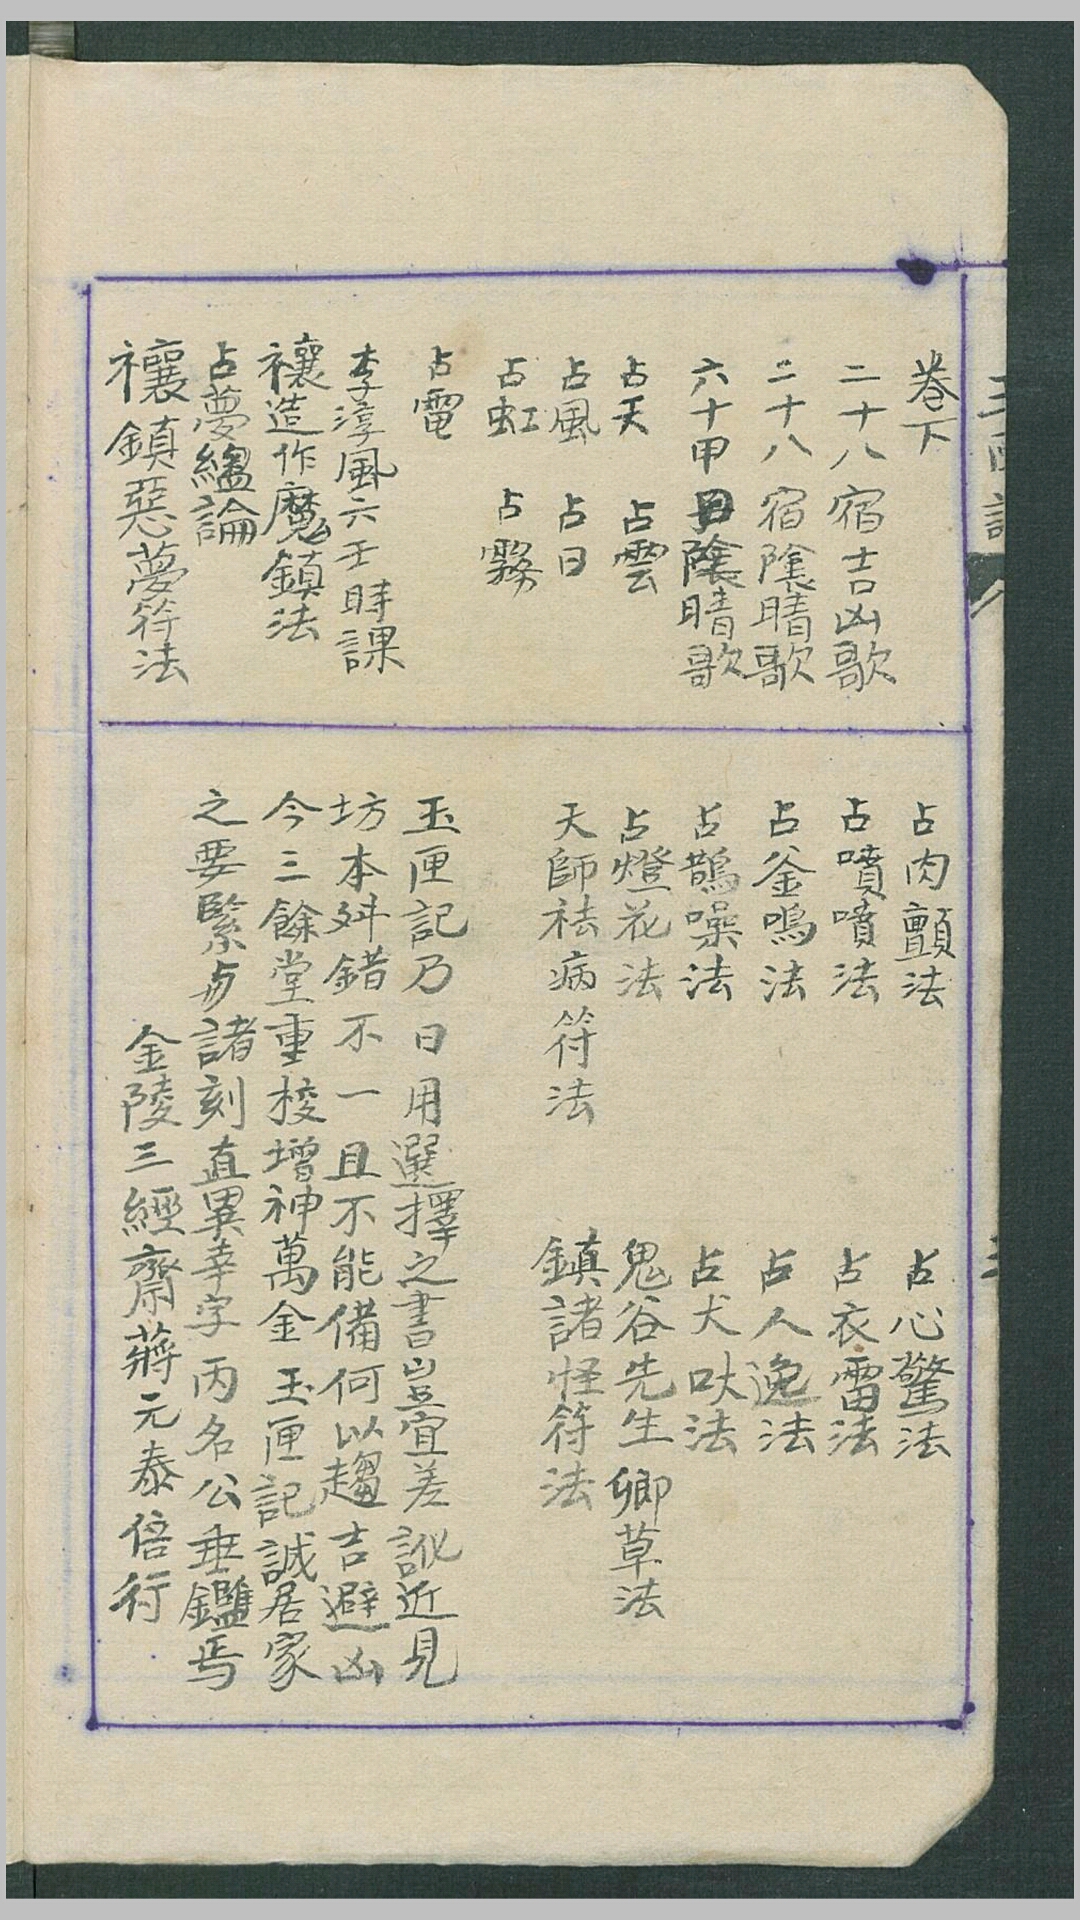 卷下
二十八宿吉凶歌
二十八宿陰晴歌
六十甲日陰晴歌
占天　占雲
占風　占日
占虹　占霧
占電
李淳風六壬時課
禳造作魔鎮法
占夢縂論
禳鎮惡夢符法
占肉顫法　占心驚法
占噴噴法　占衣雷法
占釜鳴法　占人逸法
占鵲噪法　占犬吠法
占燈花法　鬼谷先生卿草法
天師祛病符法　鎮諸怪符法
玉匣記乃日用選擇之書豈宜差訛近見
坊本舛錯不一且不能備何以趨吉避凶
今三餘堂重梭增神萬金玉匣記誠居家
之要緊与諸刻直異幸字丙名公垂鑑焉
金陵三經齋蔣元泰倍行